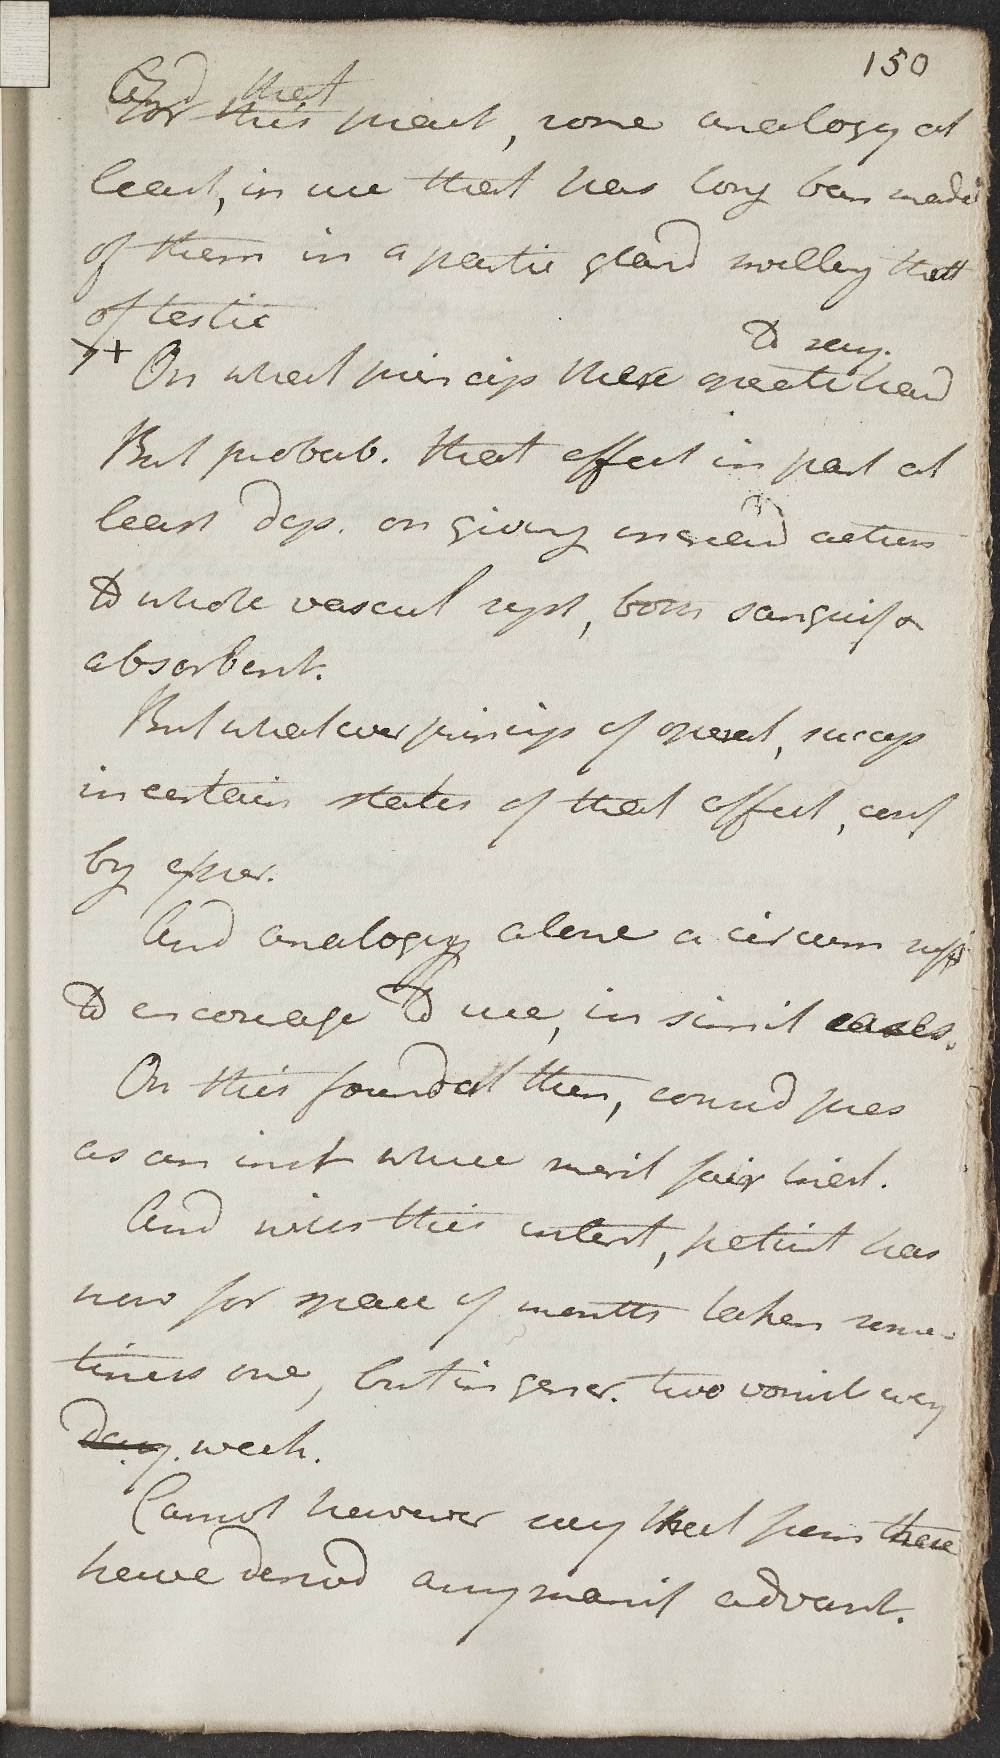 150
And that
For this pract, some analogy at
least, in use that has long been made
of them in a partic gland swelling that
of testic
7+ On what princip these operate hard
to say.
But probab. that effect in part at
least dep. on giving increasd action
to whole vascul syst, both sanguif &
absorbent.
But whatever princip of operat, success
in certain states of that affect, conf
by exper.
And analogy alone a circum suff
to encourage to use, in simil cases.
On this foundat then, considd pres
as an inst where merit fair tried.
And with this intent, patient has
now for space of months taken some-
times one, but in gener. two vomit every
day. week.
Cannot however say that from these
have derivd any manif advant.